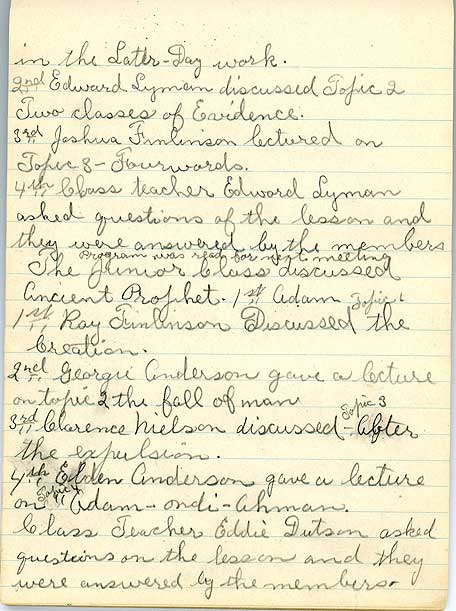 in the Later-Day work.
2nd Edward Lyman discussed Topic 2
Two classes of Evidence.
3rd Joshua Finlinson lectured on
Topic 3 - Fourwords.
4th Class teacher Edward Lyman
asked questions of the lesson and
they were answered by the members
Program was read for next meeting
The Junior Class discussed
Ancient Prophet. 1st Adam Topic 1
1st Ray Finlinson Discussed the
Creation.
2nd Georgie Anderson gave a lecture
on topic 2 the fall of man
3rd Clarence Nielson discussed - Topic 3 After
the expulsion.
4th Elden Anderson gave a lecture
on Topic 4 Adam-ondi-ahman.
Class Teacher Eddie Dutson asked
questions on the lesson and they
were answered by the members.